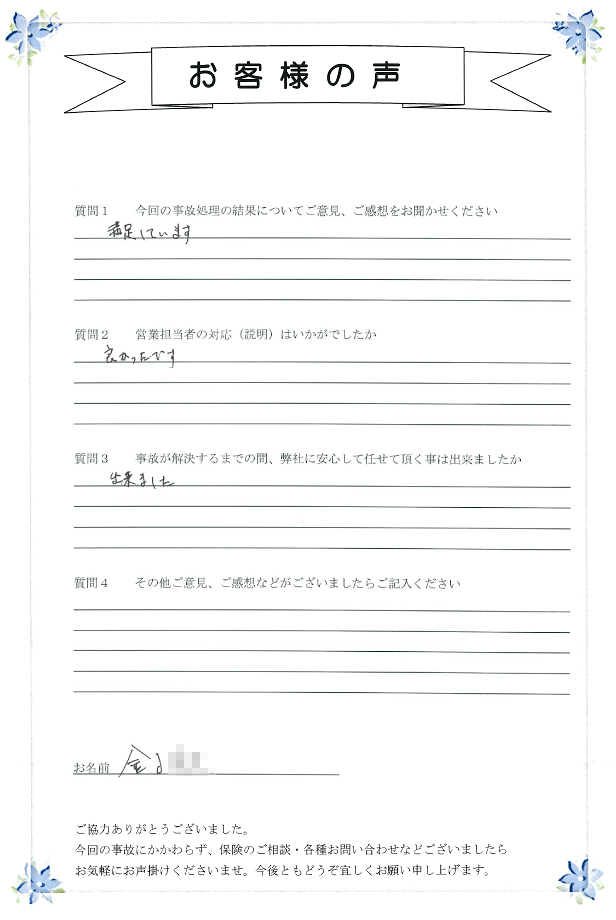 お客様の声
質問１　今回の事故処理の結果についてご意見、ご感想をお聞かせください
満足しています
質問２　営業担当者の対応（説明）はいかがでしたか
良かったです
質問３　事故が解決するまでの間、弊社に安心して任せて頂く事は出来ましたか
出来ました
質問４　その他ご意見、ご感想などがございましたらご記入ください
お名前 金
ご協力ありがとうございました。
今回の事故にかかわらず、保険のご相談・各種お問い合わせなどございましたら
お気軽にお声掛けくださいませ。今後ともどうぞ宜しくお願い申し上げます。